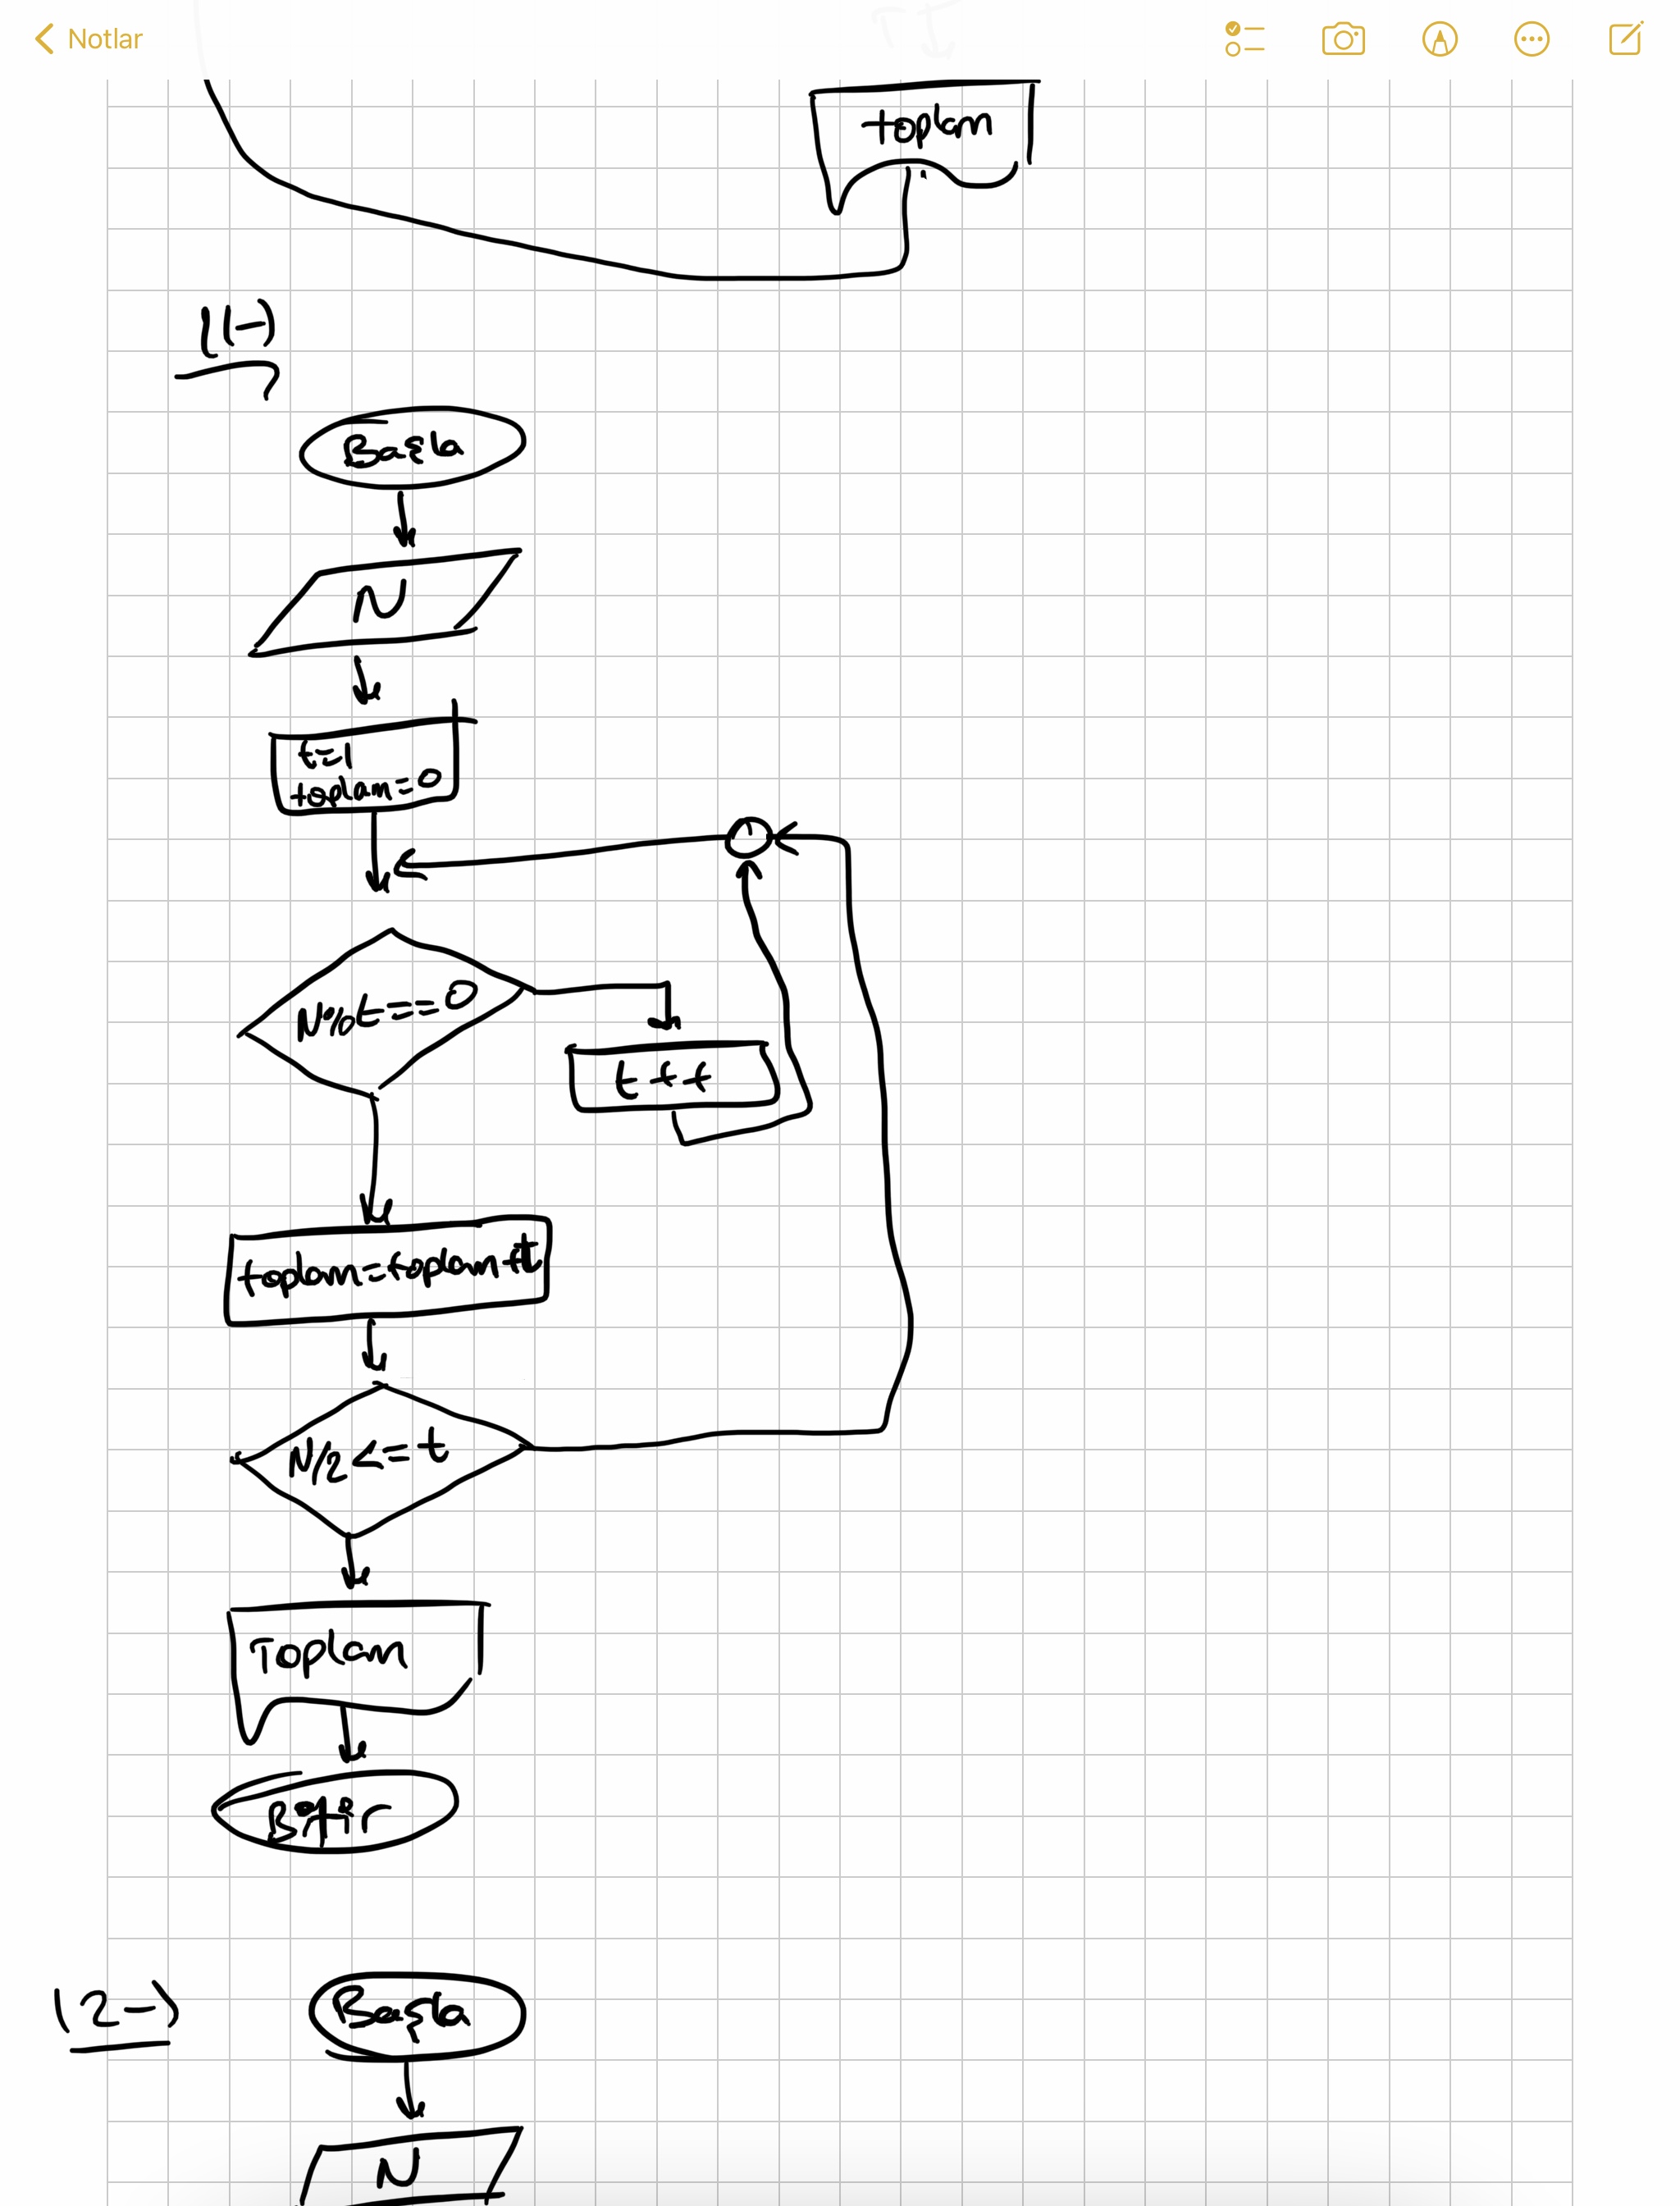 Notlar
toplam
11-)
Başla
N
t=1
toplam=0
N%t==0
t++
toplam=toplam+t
N/2<=t
Toplam
Bitir
12-)
Başla
N